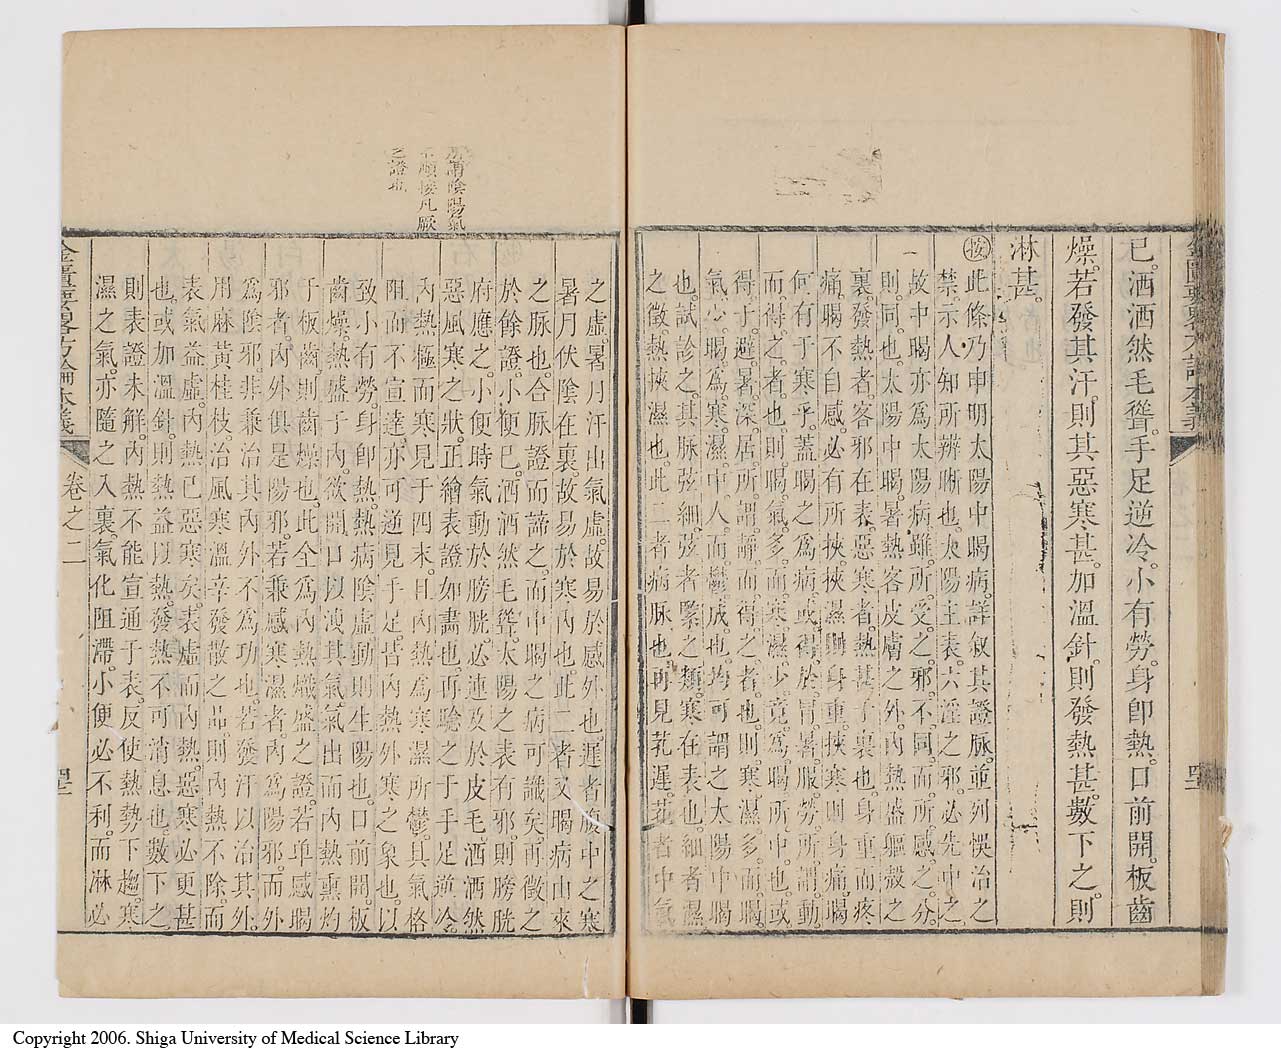 已。洒洒然毛聳。手足逆冷。小有勞。身卽熱。口前開。板齒
燥。若發其汗。則其惡寒甚。加溫針。則發熱甚。數下之。則
淋甚。
按此條。乃申明太陽中暍病。詳叙其證脉。並列悞治之
禁。示人知所辨晰也。太陽主表。六淫之邪。必先中之。
故中暍亦爲太陽病。雖所受之邪不同。而所感之分。
則一同也。太陽中暍。暑熱客皮膚之外。內熱盛軀殼之
裏。發熱者。客邪在表。惡寒者。熱甚于裏也。身重而疼
痛。暍不自感。必有所挾。挾濕則身重。挾寒則身痛。暍
何有于寒乎。蓋暍之爲病。或得於冒暑服勞。所謂動
而得之者也。則暍氣多而寒濕少。竟爲暍所中也。或
得于避暑深居。所謂靜而得之者也。則寒濕多。而暍
氣少。暍爲寒濕中人。而鬱成也。均可謂之太陽中暍
也。試診之。其脉弦細。弦者緊之類。寒在表也。細者濕
之徵。熱挾濕也。此二者病脉也。再見芤遲。芤者中氣
之虛。暑月汗出氣虛。故易於感外也。遲者腹中之寒
暑月伏陰在裏。故易於寒內也。此二者又暍病由來
之脉也。合脉證而諦之。而中暍之病可識矣。再徵之
於餘證。小便已。洒洒然毛聳。太陽之表有邪。則膀胱
府應之。小便時氣動於膀胱。必連及於皮毛。洒洒然
惡風寒之狀。正繪表證如畵也。再驗之于手足逆冷。
內熱極而寒見于四末。且內熱爲寒濕所鬱。其氣格
阻而不宣達。亦可逆見于手足。皆內熱外寒之象也。以
致小有勞。身卽熱。熱病陰虛。動則生陽也。口前開。板
齒燥。熱盛于內。欲開口以洩其氣。氣出而內熱熏灼
于板齒。則齒燥也。此全爲內熱熾盛之證。若單感暍
邪者。內外俱是陽邪。若兼感寒濕者。內爲陽邪。而外
爲陰邪。非兼治其內外不爲功也。若發汗以治其外。
用麻黃桂枝。治風寒溫辛發散之品。則內熱不除。而
表氣益虛。內熱已惡寒矣。表虛而內熱。惡寒必更甚
也。或加溫針。則熱益以熱。發熱不可消息也。數下之
則表證未解。內熱不能宣通于表。反使熱勢下趨。寒
濕之氣。亦隨之入裏。氣化阻滯。小便必不利。而淋必
所謂陰陽氣
不順接凡厥
之證也
卷之二
Copyright 2006. Shiga University of Medical Science Library